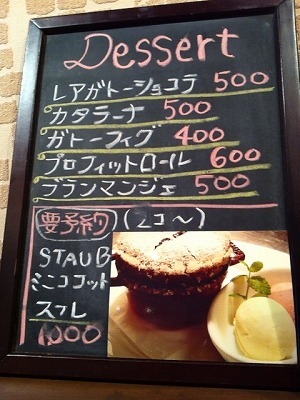 Dessert
レアガトーショコラ 500
カタラーナ 500
ガトーフィグ 400
プロフィットロール 600
ブランマンジェ 500
要予約 (2コ〜)
STAUB
ミニココット
スフレ
1000